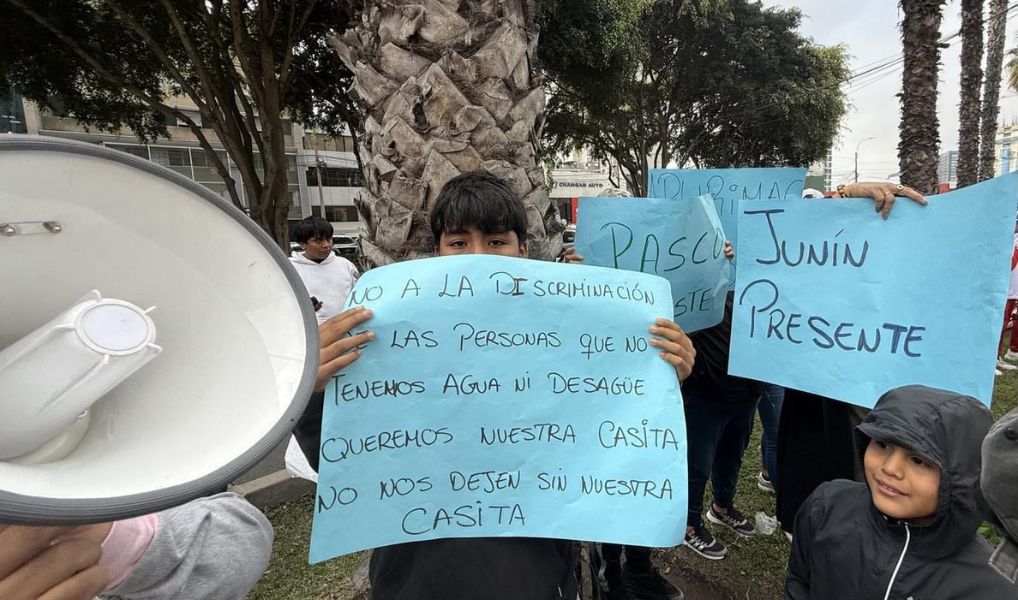 NO A LA DISCRIMINACIÓN
LAS PERSONAS QUE NO
TENEMOS AGUA NI DESAGÜE
QUEREMOS NUESTRA CASITA
NO NOS DEJEN SIN NUESTRA
CASITA
PASCO
JUNÍN
PRESENTE
CHANGAN AUTO